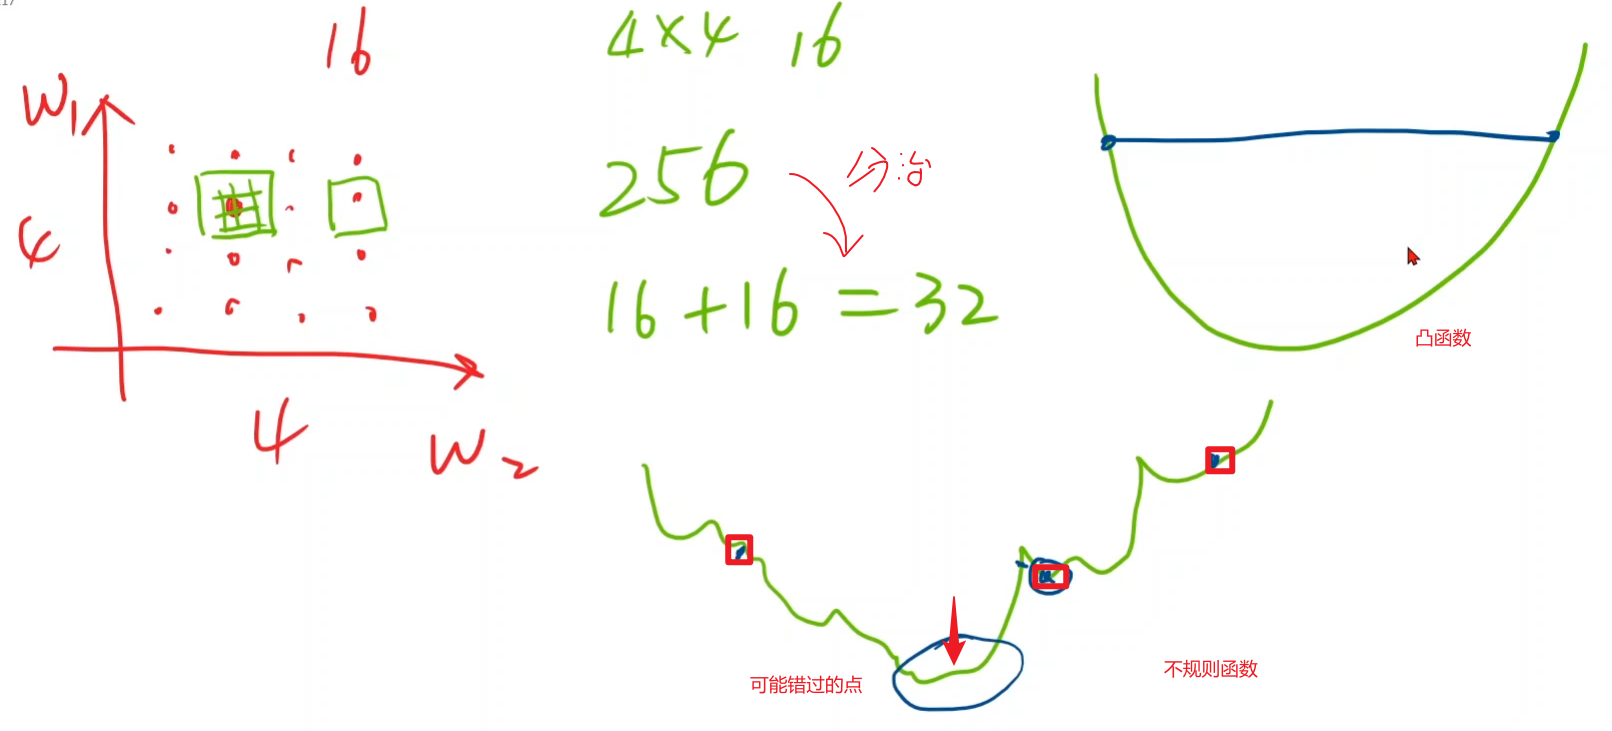 16
W1
4
4
W2
4×4 16
256
分治
16+16=32
凸函数
可能错过的点
不规则函数